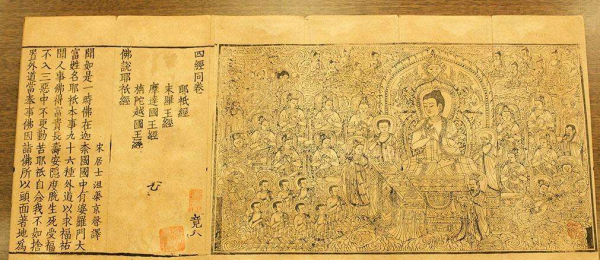 四經同卷
竟八
耶祇經
末羅王經
摩達國王經
七
旃陀越國王經
佛說耶祇經
宋居士沮渠京聲譯
聞如是一時佛在迦奈國國中有婆羅門大
富姓名耶祇本事九十六種外道以求福祐
聞人事佛得富貴長壽安隱度脫生死受福
不入三惡中不更勤苦耶祇自念我不如捨
置外道當奉事佛因詣佛所以頭面著地為